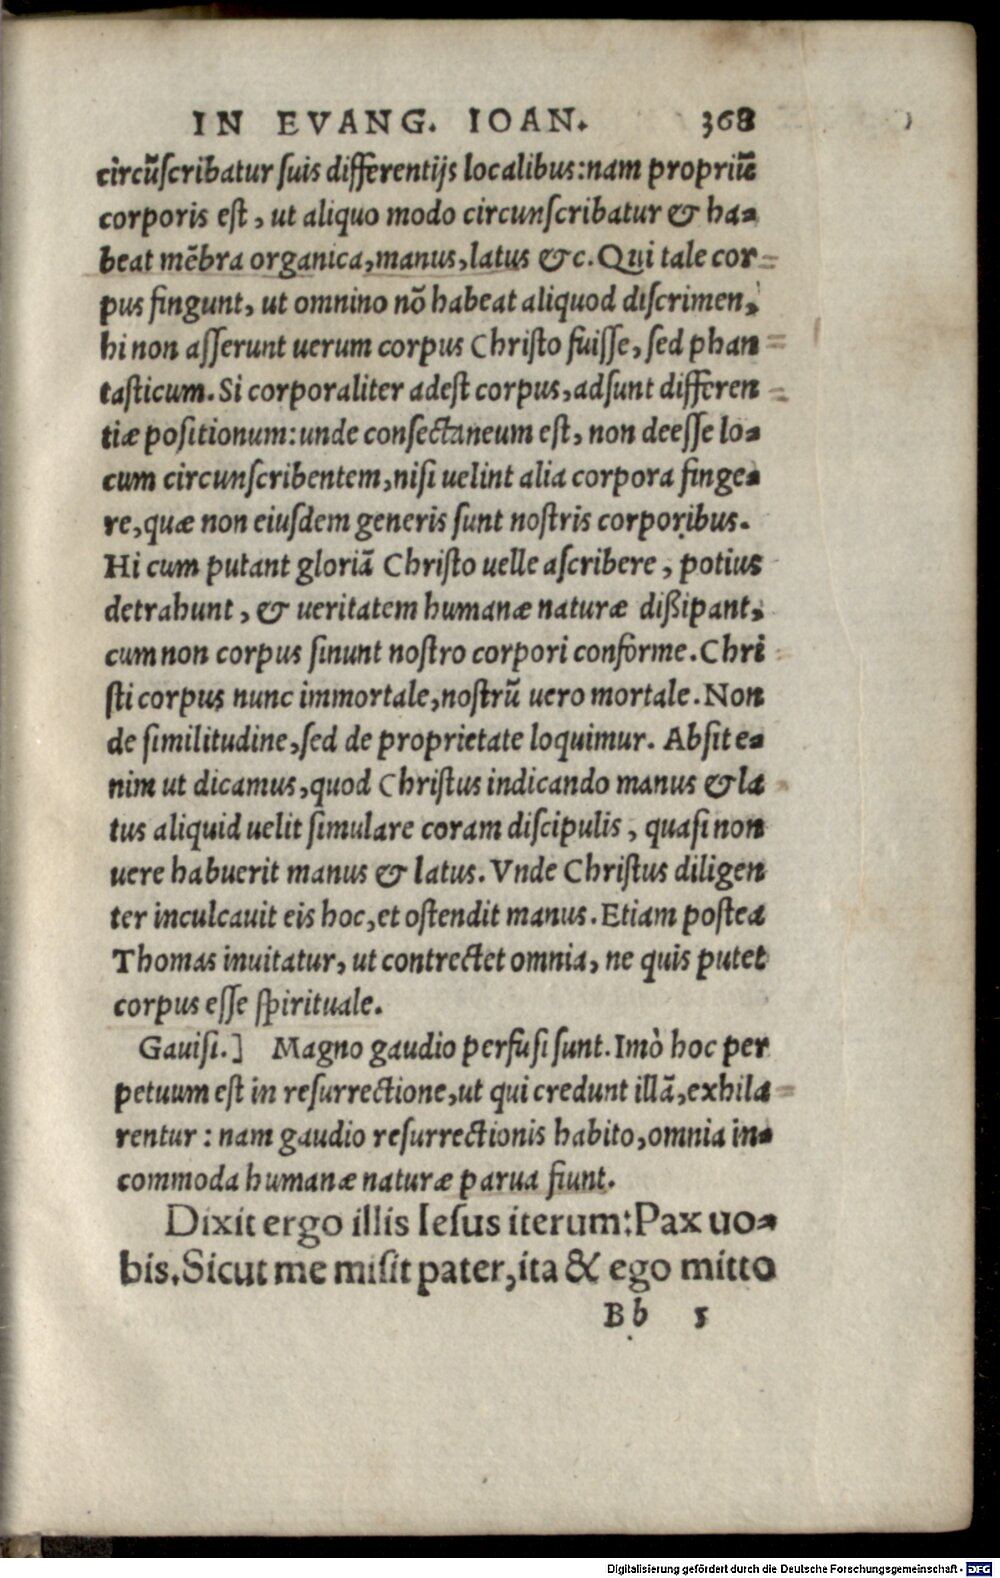 IN EVANG. IOAN. 368
circũscribatur suis differentijs localibus: nam propriũ
corporis est, ut aliquo modo circunscribatur & ha-
beat mẽbra organica, manus, latus &c. Qui tale cor-
pus fingunt, ut omnino nõ habeat aliquod discrimen,
hi non asserunt uerum corpus Christo fuisse, sed phan
tasticum. Si corporaliter adest corpus, adsunt differen
tiæ positionum: unde consectaneum est, non deesse lo-
cum circunscribentem, nisi uelint alia corpora finge-
re, quæ non eiusdem generis sunt nostris corporibus.
Hi cum putant gloriã Christo uelle ascribere, potius
detrahunt, & ueritatem humanæ naturæ dißipant,
cum non corpus sinunt nostro corpori conforme. Chri
sti corpus nunc immortale, nostrũ uero mortale. Non
de similitudine, sed de proprietate loquimur. Absit e-
nim ut dicamus, quod Christus indicando manus & la
tus aliquid uelit simulare coram discipulis, quasi non
uere habuerit manus & latus. Vnde Christus diligen
ter inculcauit eis hoc, et ostendit manus. Etiam postea
Thomas inuitatur, ut contrectet omnia, ne quis putet
corpus esse spirituale.
Gauisi.] Magno gaudio perfusi sunt. Imò hoc per
petuum est in resurrectione, ut qui credunt illã, exhila
rentur: nam gaudio resurrectionis habito, omnia in-
commoda humanæ naturæ parua fiunt.
Dixit ergo illis Iesus iterum: Pax uo-
bis. Sicut me misit pater, ita & ego mitto
Bb 5
Digitalisierung gefördert durch die Deutsche Forschungsgemeinschaft - DFG